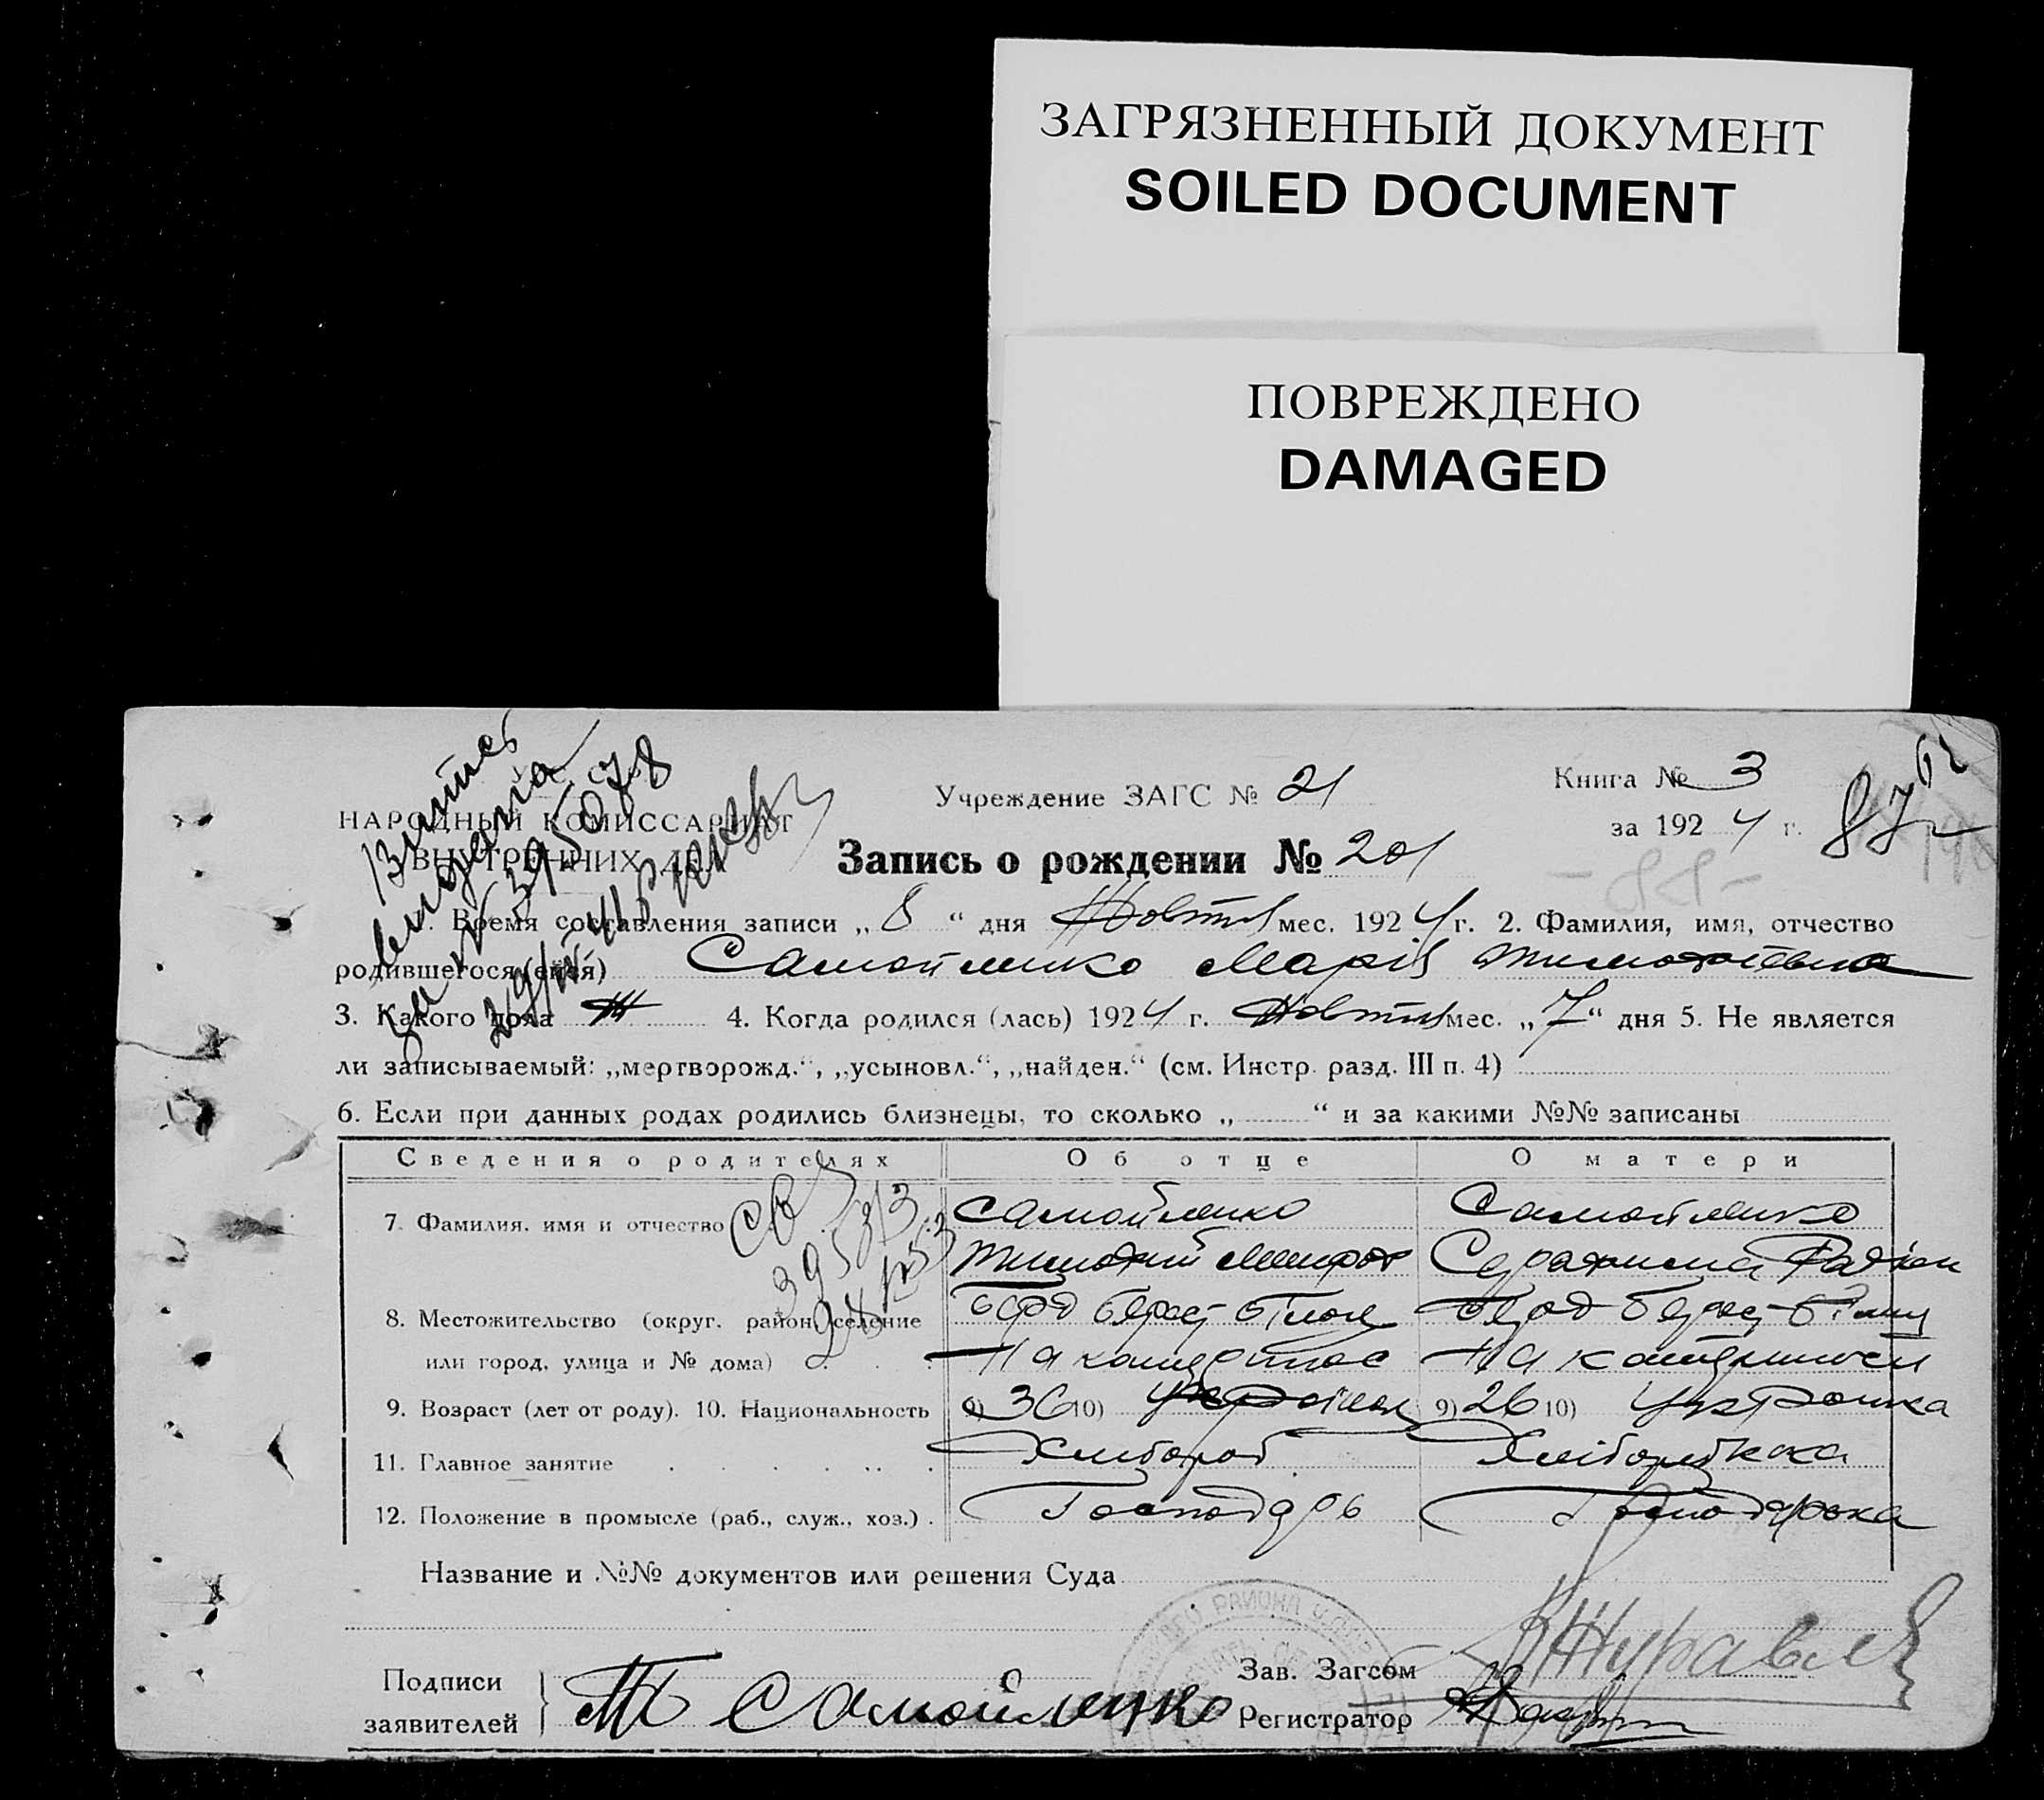 ЗАГРЯЗНЕННЫЙ ДОКУМЕНТ
SOILED DOCUMENT
ПОВРЕЖДЕНО
DAMAGED
НАРОДНЫЙ КОМИССАРИАТ
ВНУТРЕННИХ ДЕЛ
Учреждение ЗАГС № 21
Книга № 3
за 1924 г.
87
Запись о рождении № 201
1. Время составления записи „ 8 “ дня Жовтня мес. 1924 г. 2. Фамилия, имя, отчество
родившегося (ейся) Самойленко Марія Тимофіївна
3. Какого пола Ж 4. Когда родился (лась) 1924 г. Жовтня мес. „ 7 “ дня 5. Не является
ли записываемый: „мертворожд.“, „усыновл.“, „найден.“ (см. Инстр. разд. III п. 4)
6. Если при данных родах родились близнецы, то сколько „ “ и за какими №№ записаны
Сведения о родителях Об отце О матери
7. Фамилия, имя и отчество Самойленко Самойленко
Тимофий Серафима Радіон
8. Местожительство (округ. район, селение
или город, улица и № дома)
9. Возраст (лет от роду). 10. Национальность 9) 36 10) Українец 9) 26 10) Українка
11. Главное занятие Хлибороб Хліборобка
12. Положение в промысле (раб., служ., хоз.) Господарь Господарька
Название и №№ документов или решения Суда
Подписи
заявителей Т Самойленко
Зав. Загсом Журавле
Регистратор